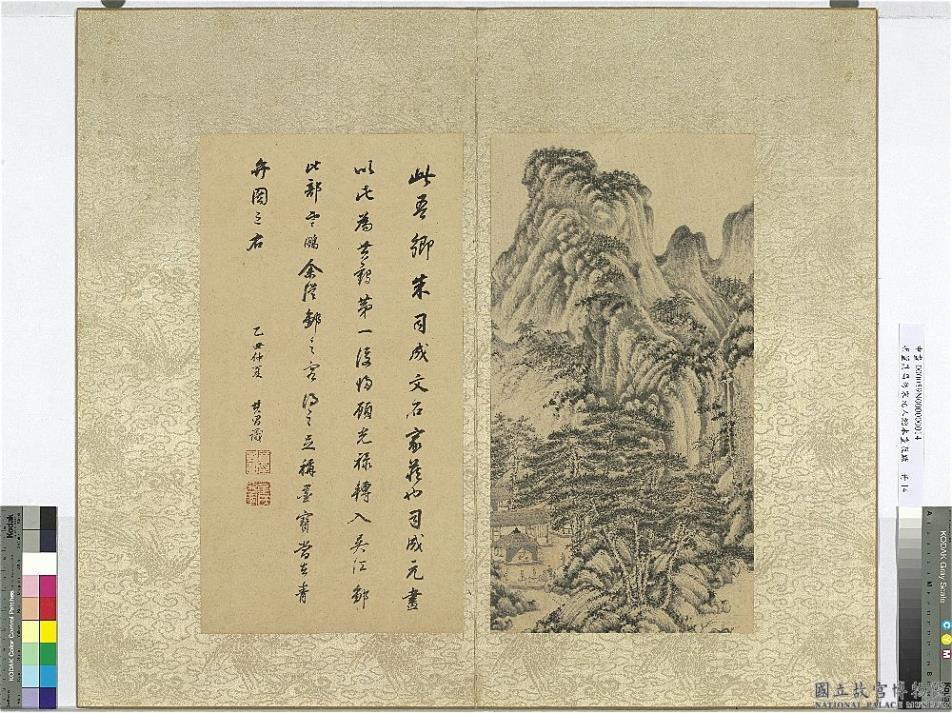 此吾鄉朱司成文石家藏也司成元畫
以此為黃鶴第一後歸顧光祿轉入吳江鄒
比部雲鵬余從鄒之客得之稱墨寶當在青
弁圖之右
乙丑仲夏 其昌識
Kodak
KODAK Color Control Patches
KODAK Gray Scale
C Y M
國立故宮博物院
NATIONAL PALACE MUSEUM